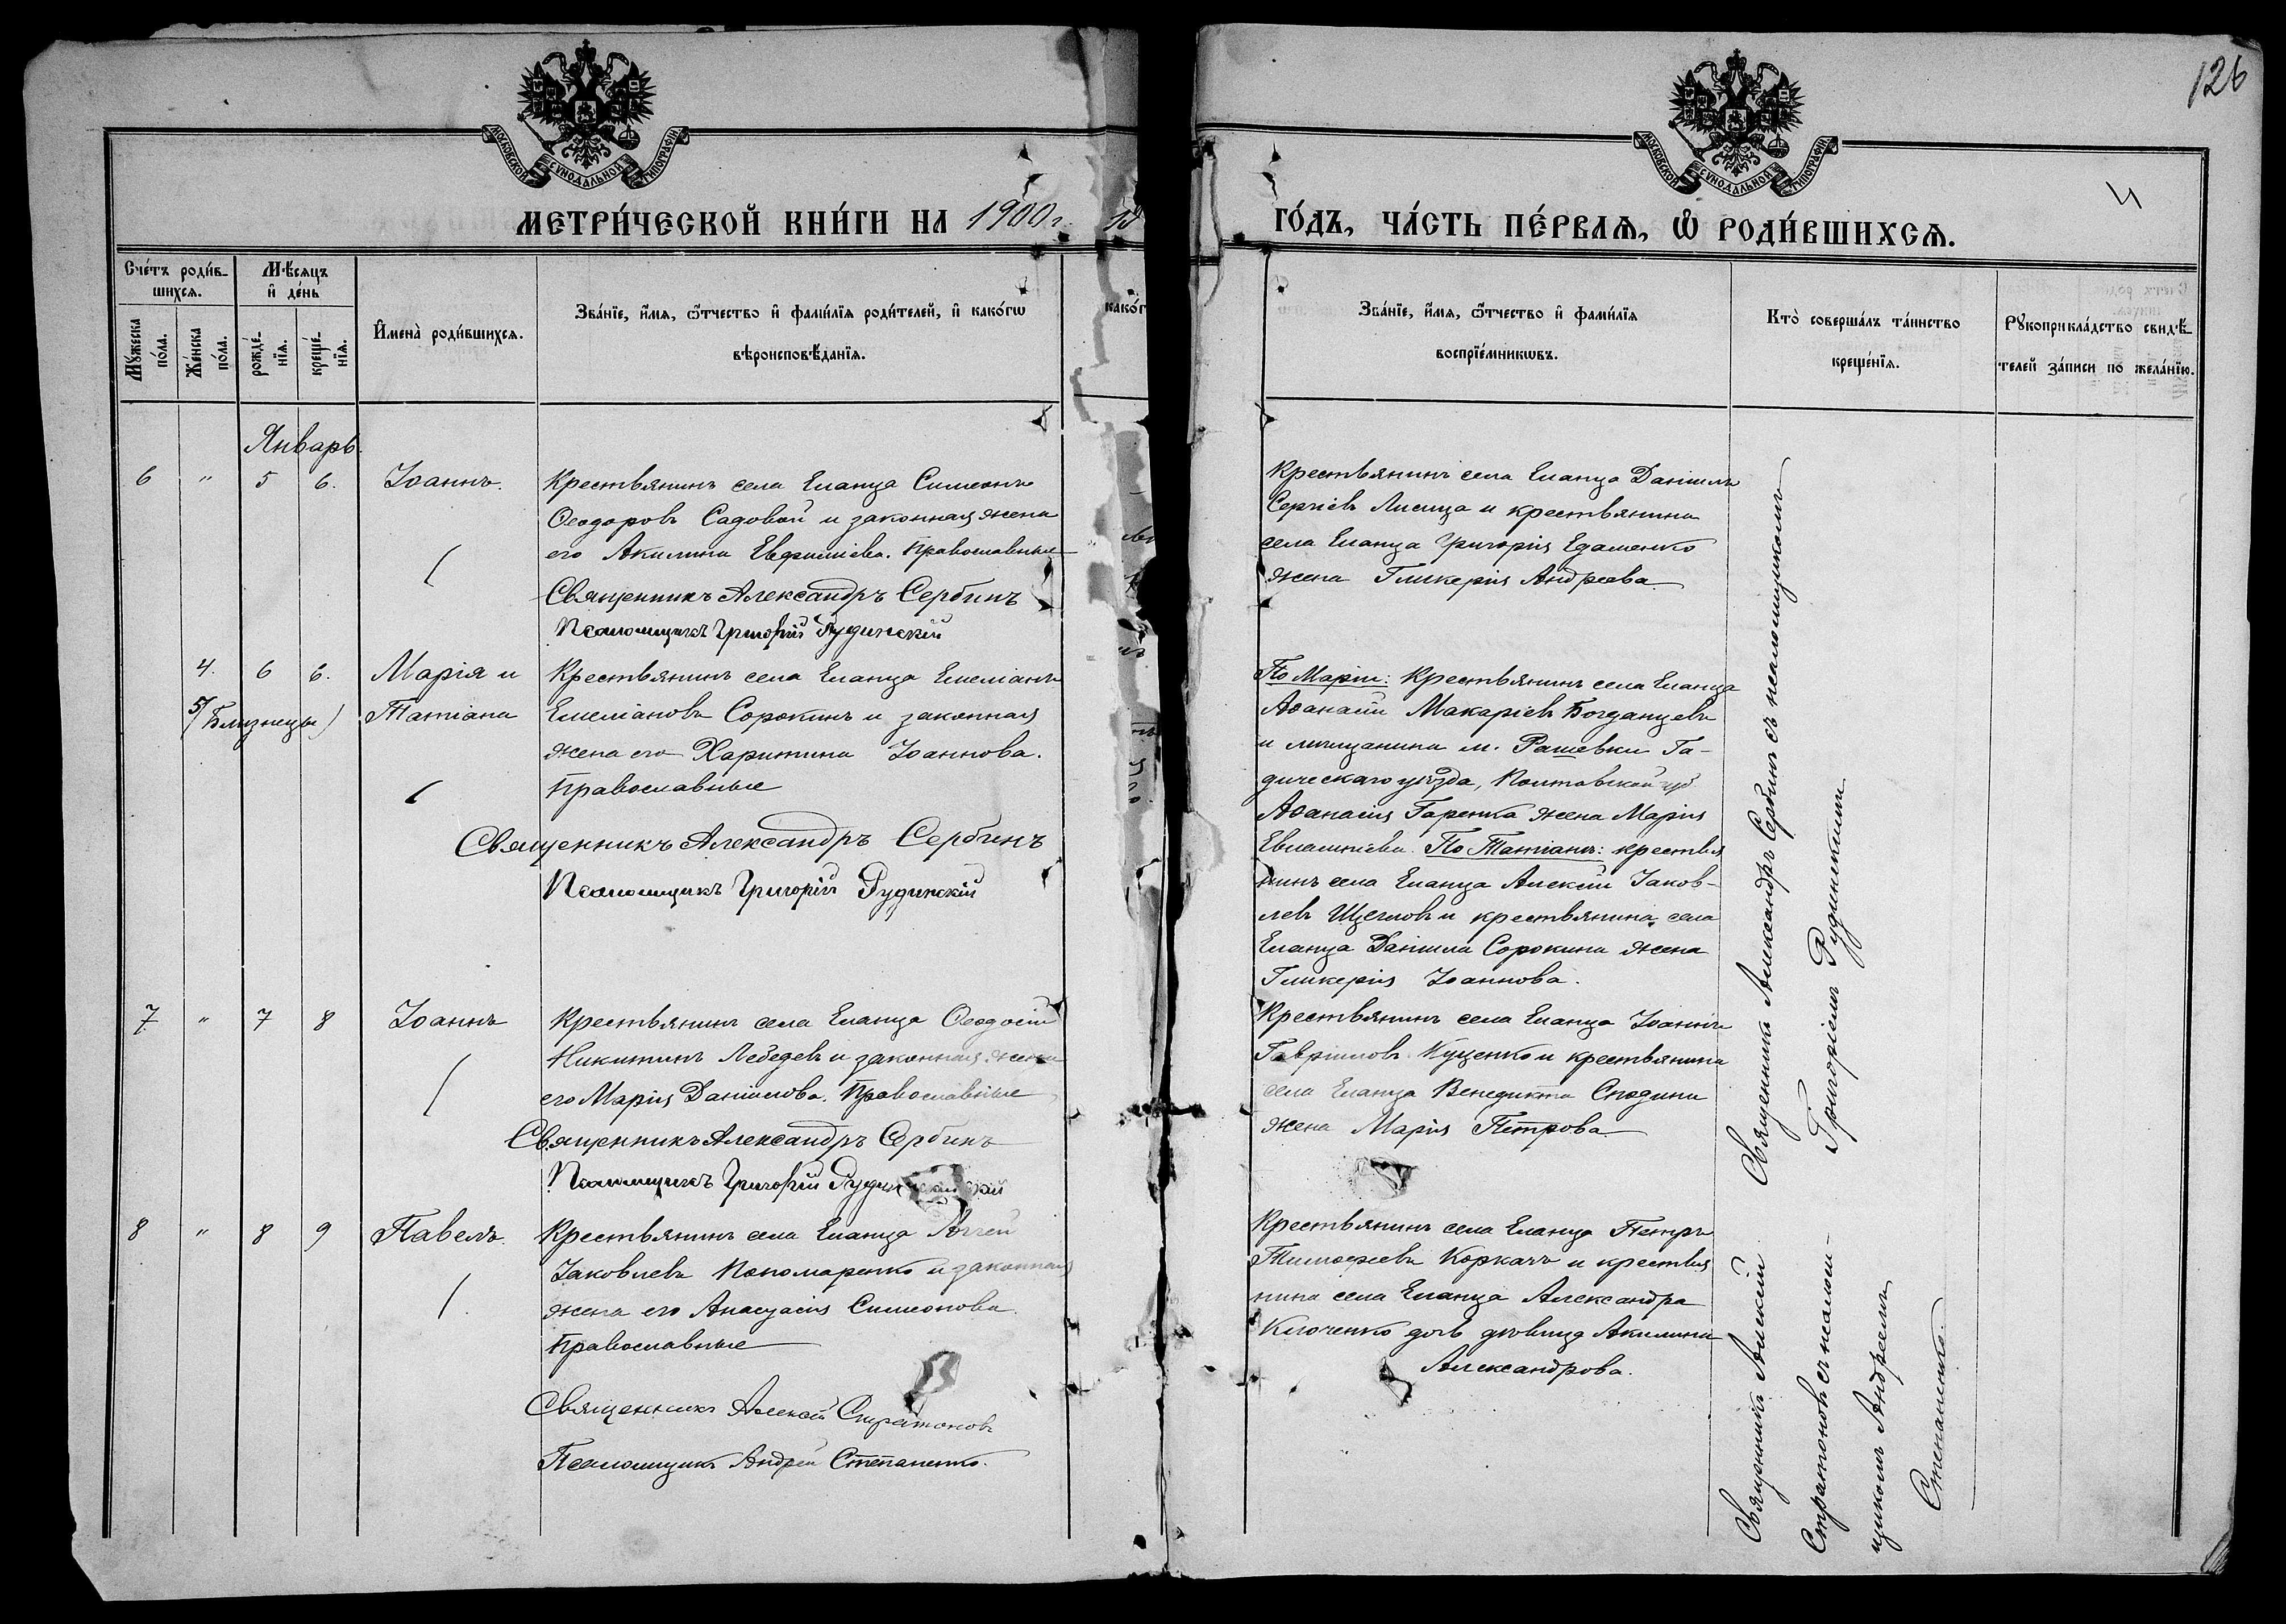 126
МОСКОВСКОЙ СУНОДАЛЬНОЙ ТИПОГРАФІИ
МОСКОВСКОЙ СУНОДАЛЬНОЙ ТИПОГРАФІИ
МЕТРИ́ЧЕСКОЙ КНИ́ГИ НА 1900 г.
ГО́ДЪ, ЧА́СТЬ ПЕ́РВАѦ, Ѽ РОДИ́ВШИХСѦ.
Сче́тъ роди́в-
шихсѧ.
Мꙋ́жеска по́ла.
Же́нска по́ла.
Мѣ́сѧцъ и҆ де́нь
рожде́-нїѧ.
креще́-нїѧ.
И҆мена̀ роди́вшихсѧ.
Зва́нїе, и҆́мѧ, ѻ҆́тчество и҆ фами́лїѧ роди́телей, и҆ како́гѡ
вѣроисповѣ́данїѧ.
како́г
Зва́нїе, и҆́мѧ, ѻ҆́тчество и҆ фами́лїѧ
воспрїе́мникѡвъ.
Кто̀ соверша́лъ та́инство
креще́нїѧ.
Рꙋкоприкла́дство свидѣ́-
телей за́писи по жела́нїю.
Январь.
6 " 5 6. Іоаннъ.
Крестьянинъ села Еланца Симеонъ
Ѳеодоровъ Садовой и законная жена
его Акилина Евфиміева. Православные
Священникъ Александръ Сербинъ
Псаломщикъ Григорій Рудинскій
Крестьянинъ села Еланца Даніилъ
Сергіевъ Лисица и крестьянина
села Еланца Григорія Едаменко
жена Гликерія Андреева.
4. 6 6. Марія и
5 (Близнецы) Татіана
Крестьянинъ села Еланца Емеліанъ
Емеліановъ Сорокинъ и законная
жена его Харитина Іоаннова.
Православные
Священникъ Александръ Сербинъ
Псаломщикъ Григорій Рудинскій
По Маріи: Крестьянинъ села Еланца
Аѳанасій Макаріевъ Богданцевъ
и мѣщанина м. Рашевки Га-
дическаго уѣзда, Полтавской губ.
Аѳанасія Гаренка жена Марія
Евлампіева. По Татіанѣ: крестья
нинъ села Еланца Алексій Іаков-
левъ Щегловъ и крестьянина села
Еланца Даніила Сорокина жена
Гликерія Іоаннова.
7 " 7 8 Іоаннъ
Крестьянинъ села Еланца Ѳеодосій
Никитинъ Лебедевъ и законная жена
его Марія Даніилова. Православные
Священникъ Александръ Сербинъ
Псаломщикъ Григорій
Крестьянинъ села Еланца Іоаннъ
Гавріиловъ Куценко и крестьянина
села Еланца Венедикта Сподина
жена Марія Петрова.
Священникъ Александръ Сербинъ съ псаломщикомъ
Григоріемъ Рудинскимъ
8 " 8 9 Павелъ
Крестьянинъ села Еланца
Іаковлевъ Пономаренко и законная
жена его Анастасія Симеонова.
Православные
Священникъ Алексій Стратоновъ
Псаломщикъ Андрей Степаненко.
Крестьянинъ села Еланца Петръ
Тимоѳеевъ Коркачъ и крестья
нина села Еланца Александра
Клоченко дочь дѣвица Акилина
Александрова.
Священникъ Алексій
Стратоновъ съ псалом-
щикомъ Андреемъ
Степаненко.